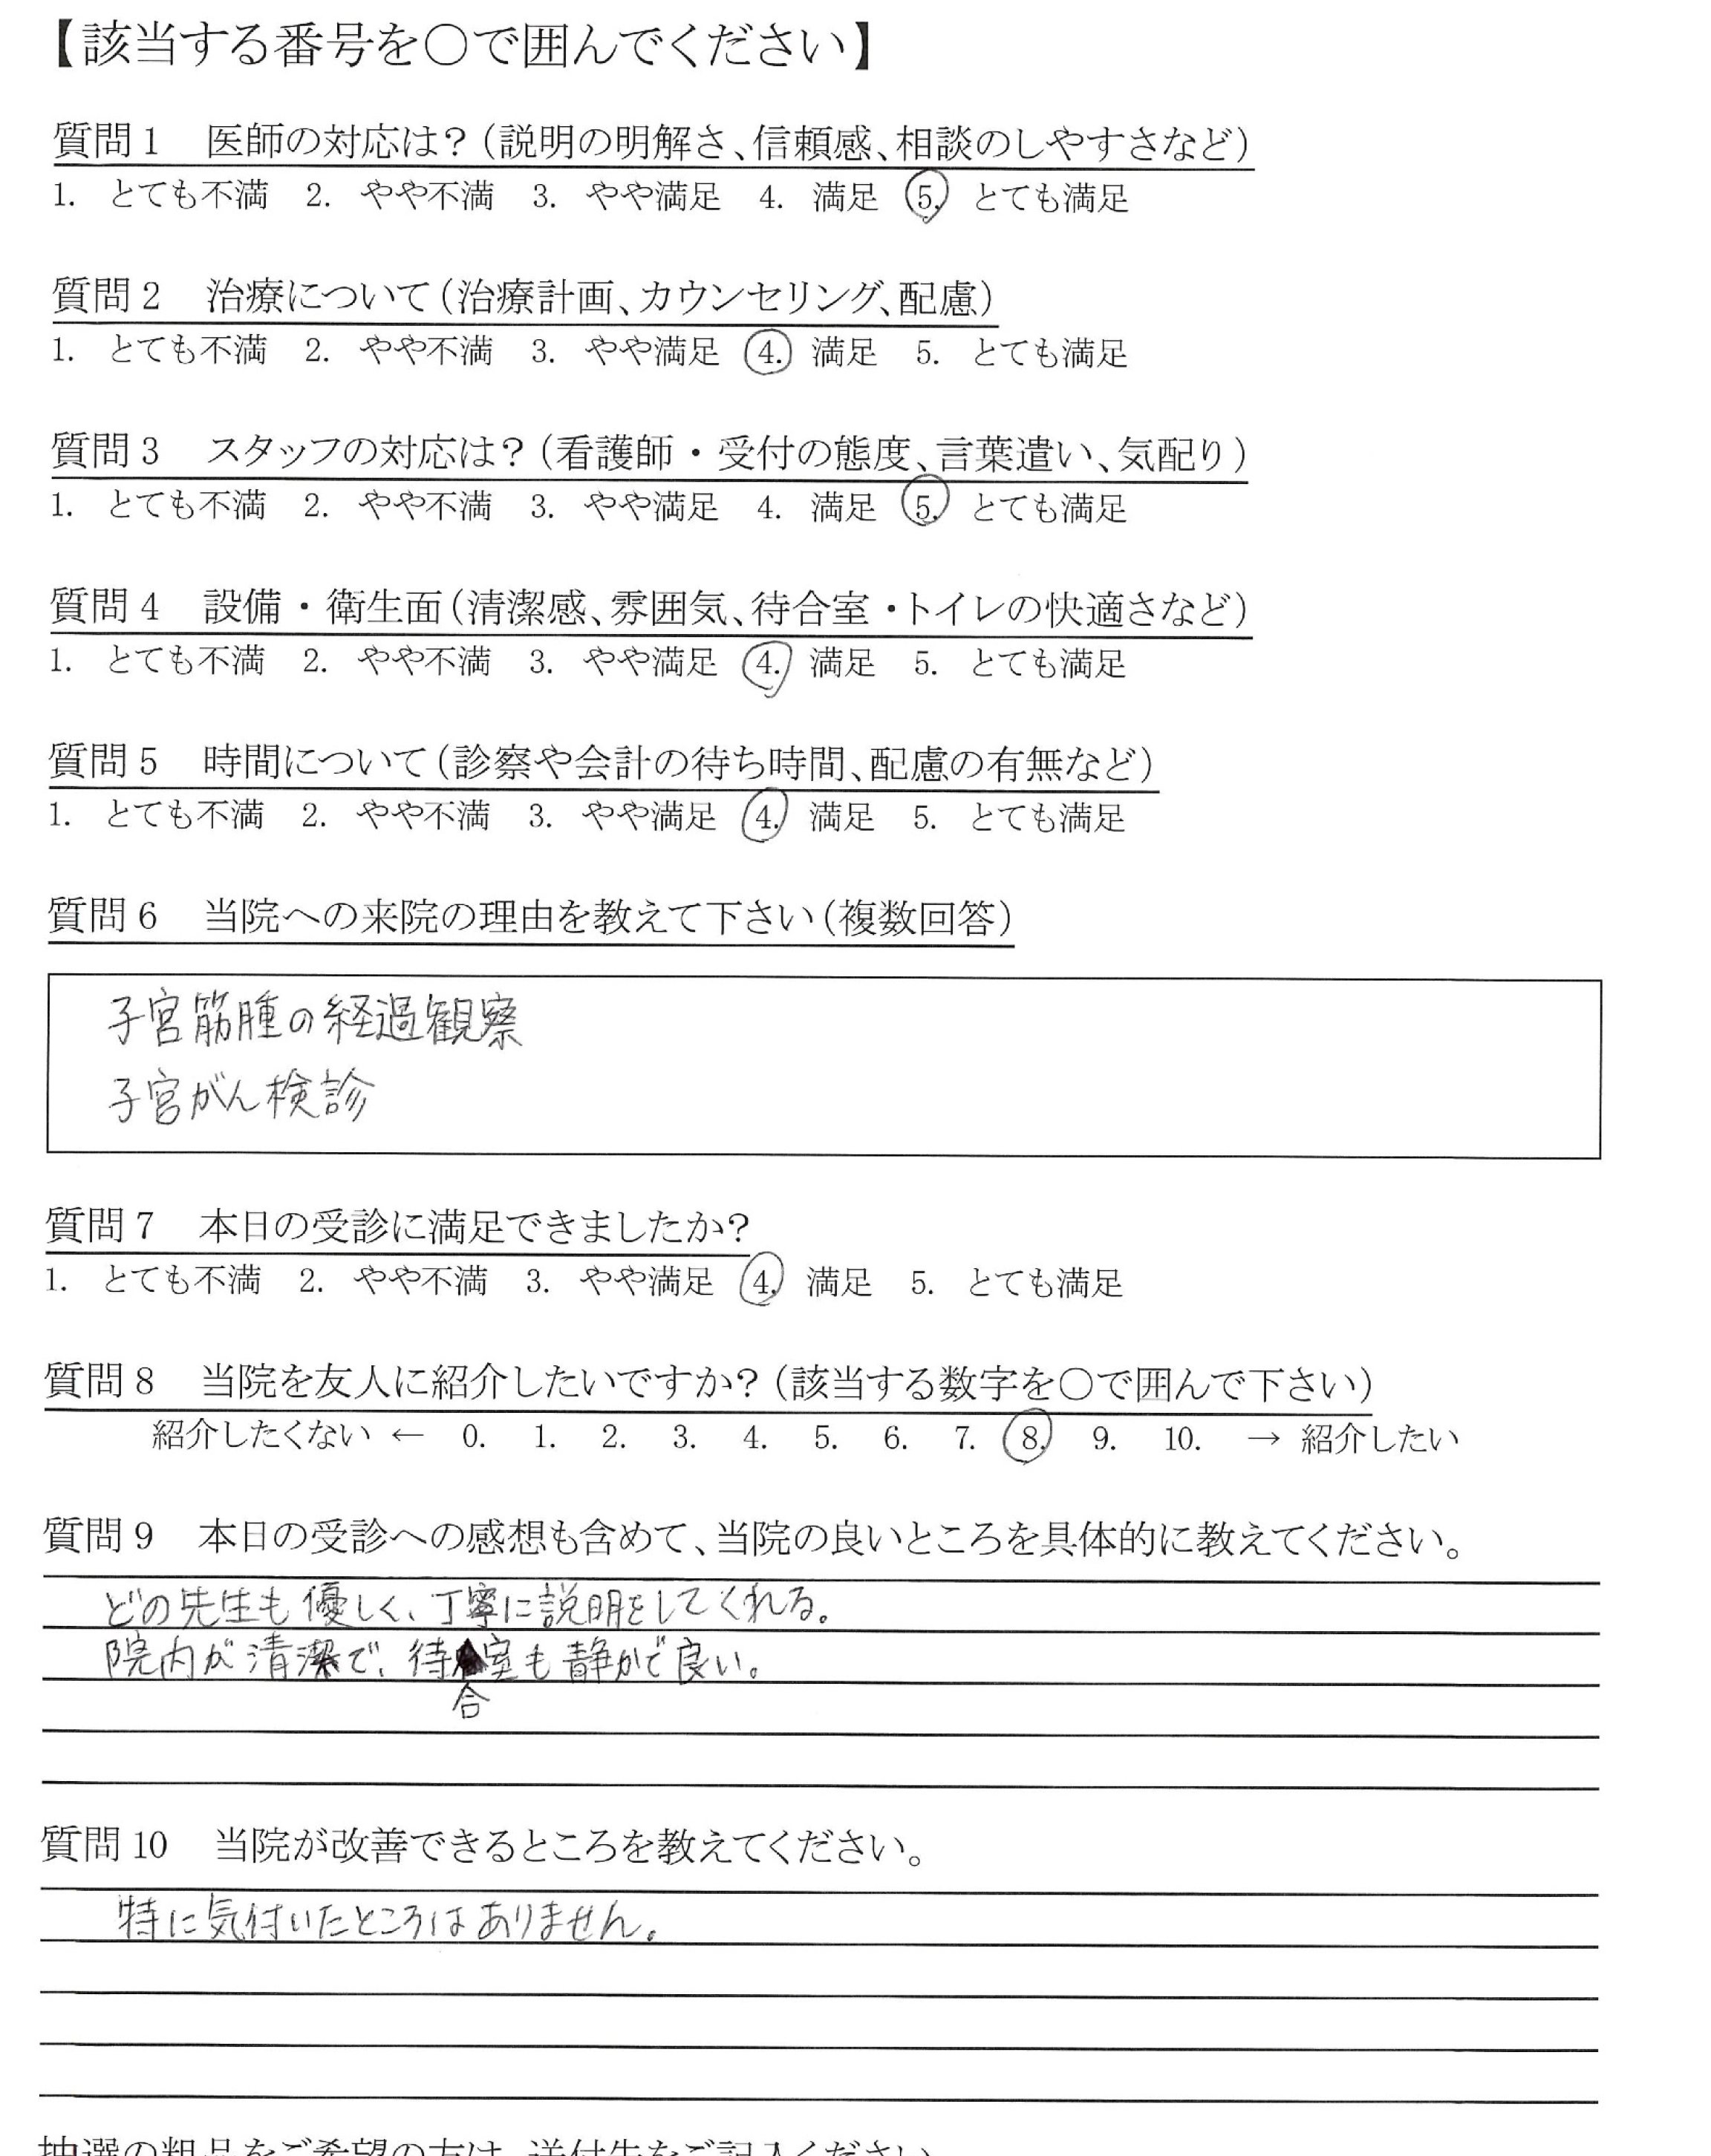 【該当する番号を○で囲んでください】
質問1　医師の対応は？（説明の明解さ、信頼感、相談のしやすさなど）
1.　とても不満　2.　やや不満　3.　やや満足　4.　満足　5.　とても満足
質問2　治療について（治療計画、カウンセリング、配慮）
1.　とても不満　2.　やや不満　3.　やや満足　4.　満足　5.　とても満足
質問3　スタッフの対応は？（看護師・受付の態度、言葉遣い、気配り）
1.　とても不満　2.　やや不満　3.　やや満足　4.　満足　5.　とても満足
質問4　設備・衛生面（清潔感、雰囲気、待合室・トイレの快適さなど）
1.　とても不満　2.　やや不満　3.　やや満足　4.　満足　5.　とても満足
質問5　時間について（診察や会計の待ち時間、配慮の有無など）
1.　とても不満　2.　やや不満　3.　やや満足　4.　満足　5.　とても満足
質問6　当院への来院の理由を教えて下さい（複数回答）
子宮筋腫の経過観察
子宮がん検診
質問7　本日の受診に満足できましたか？
1.　とても不満　2.　やや不満　3.　やや満足　4.　満足　5.　とても満足
質問8　当院を友人に紹介したいですか？（該当する数字を○で囲んで下さい）
紹介したくない ← 0. 1. 2. 3. 4. 5. 6. 7. 8. 9. 10. → 紹介したい
質問9　本日の受診への感想も含めて、当院の良いところを具体的に教えてください。
どの先生も優しく、丁寧に説明をしてくれる。
院内が清潔で、待合室も静かで良い。
質問10　当院が改善できるところを教えてください。
特に気付いたところはありません。
抽選の粗品をご希望の方は、送付先をご記入ください